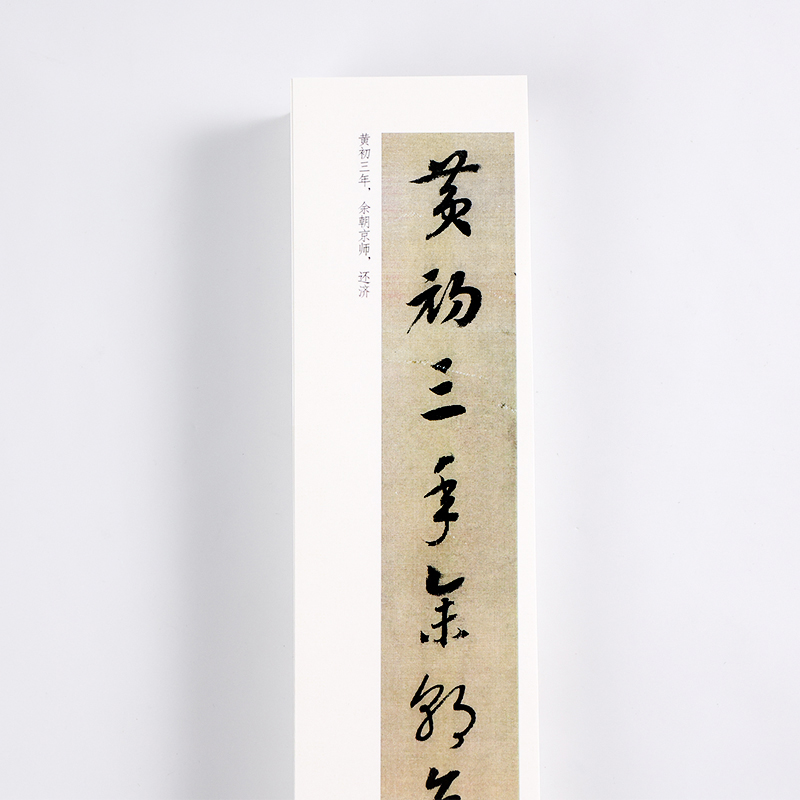 黄初三年余朝
黄初三年，余朝京师，还济